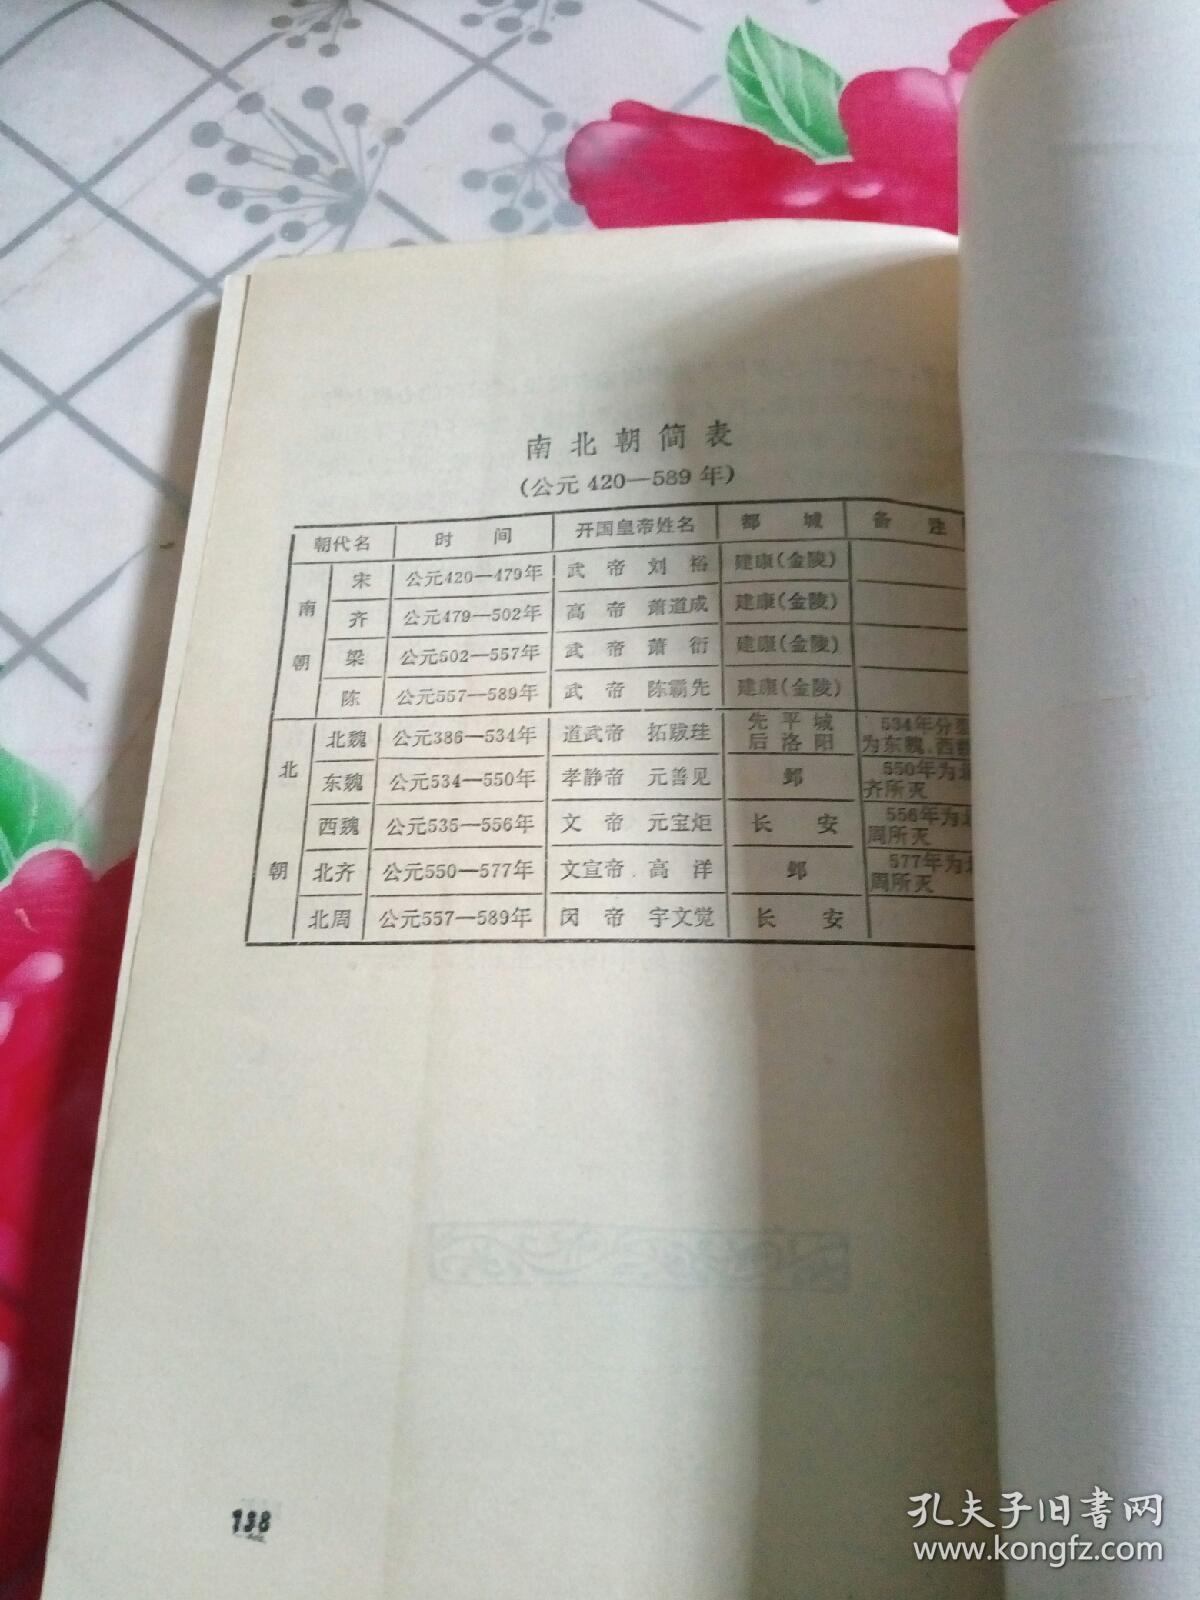 南北朝简表
(公元420—589年)
朝代名 时间 开国皇帝姓名 都城 备注
南朝 宋 公元420—479年 武帝 刘裕 建康(金陵)
齐 公元479—502年 高帝 萧道成 建康(金陵)
梁 公元502—557年 武帝 萧衍 建康(金陵)
陈 公元557—589年 武帝 陈霸先 建康(金陵)
北朝 北魏 公元386—534年 道武帝 拓跋珪 先平城 534年分裂
后洛阳 为东魏、西魏
东魏 公元534—550年 孝静帝 元善见 邺 550年为北
齐所灭
西魏 公元535—556年 文帝 元宝炬 长安 556年为北
周所灭
北齐 公元550—577年 文宣帝 高洋 邺 577年为北
周所灭
北周 公元557—589年 闵帝 宇文觉 长安
138
孔夫子旧书网
www.kongfz.com